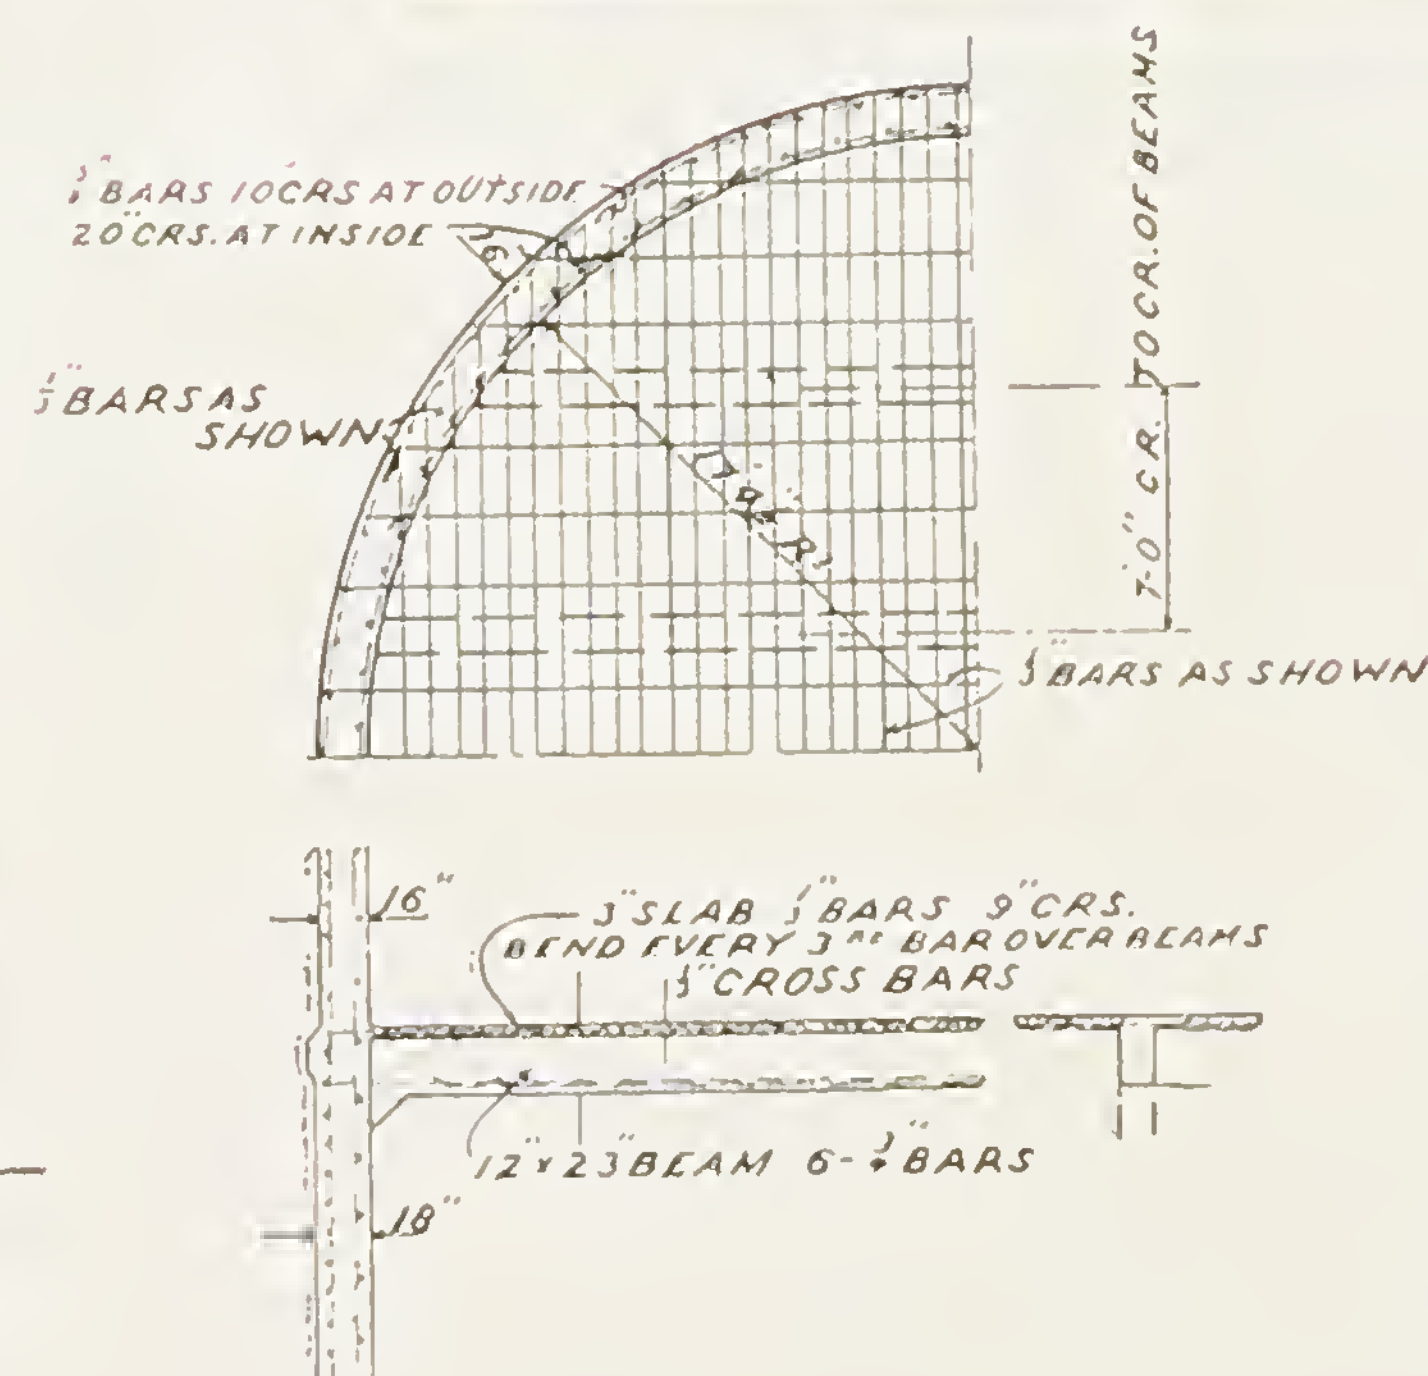 BARS 10" CRS AT OUTSIDE
20" CRS. AT INSIDE
16"
BARS AS
SHOWN
R
7'-0" CR. TO CR. OF BEAMS
BARS AS SHOWN
16"
3" SLAB BARS 9" CRS.
BEND EVERY 3RD BAR OVER BEAMS
CROSS BARS
12" x 23" BEAM 6- BARS
18"